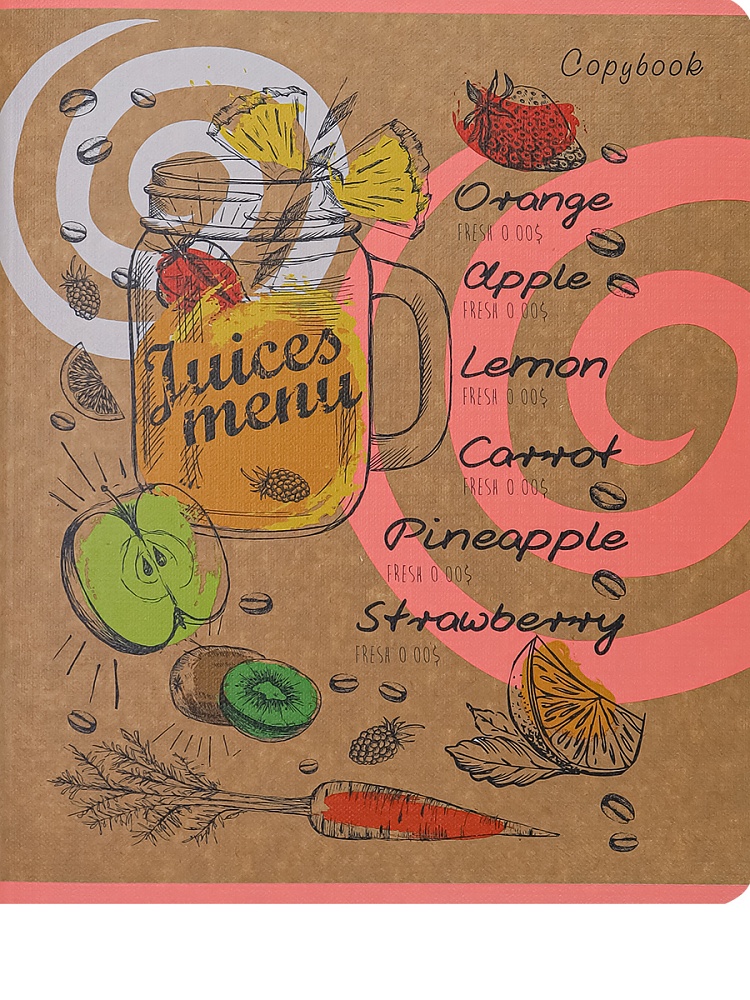 Copybook
Juices
menu
Orange
FRESH 0 00$
Apple
FRESH 0 00$
Lemon
FRESH 0 00$
Carrot
FRESH 0 00$
Pineapple
FRESH 0 00$
Strawberry
FRESH 0 00$